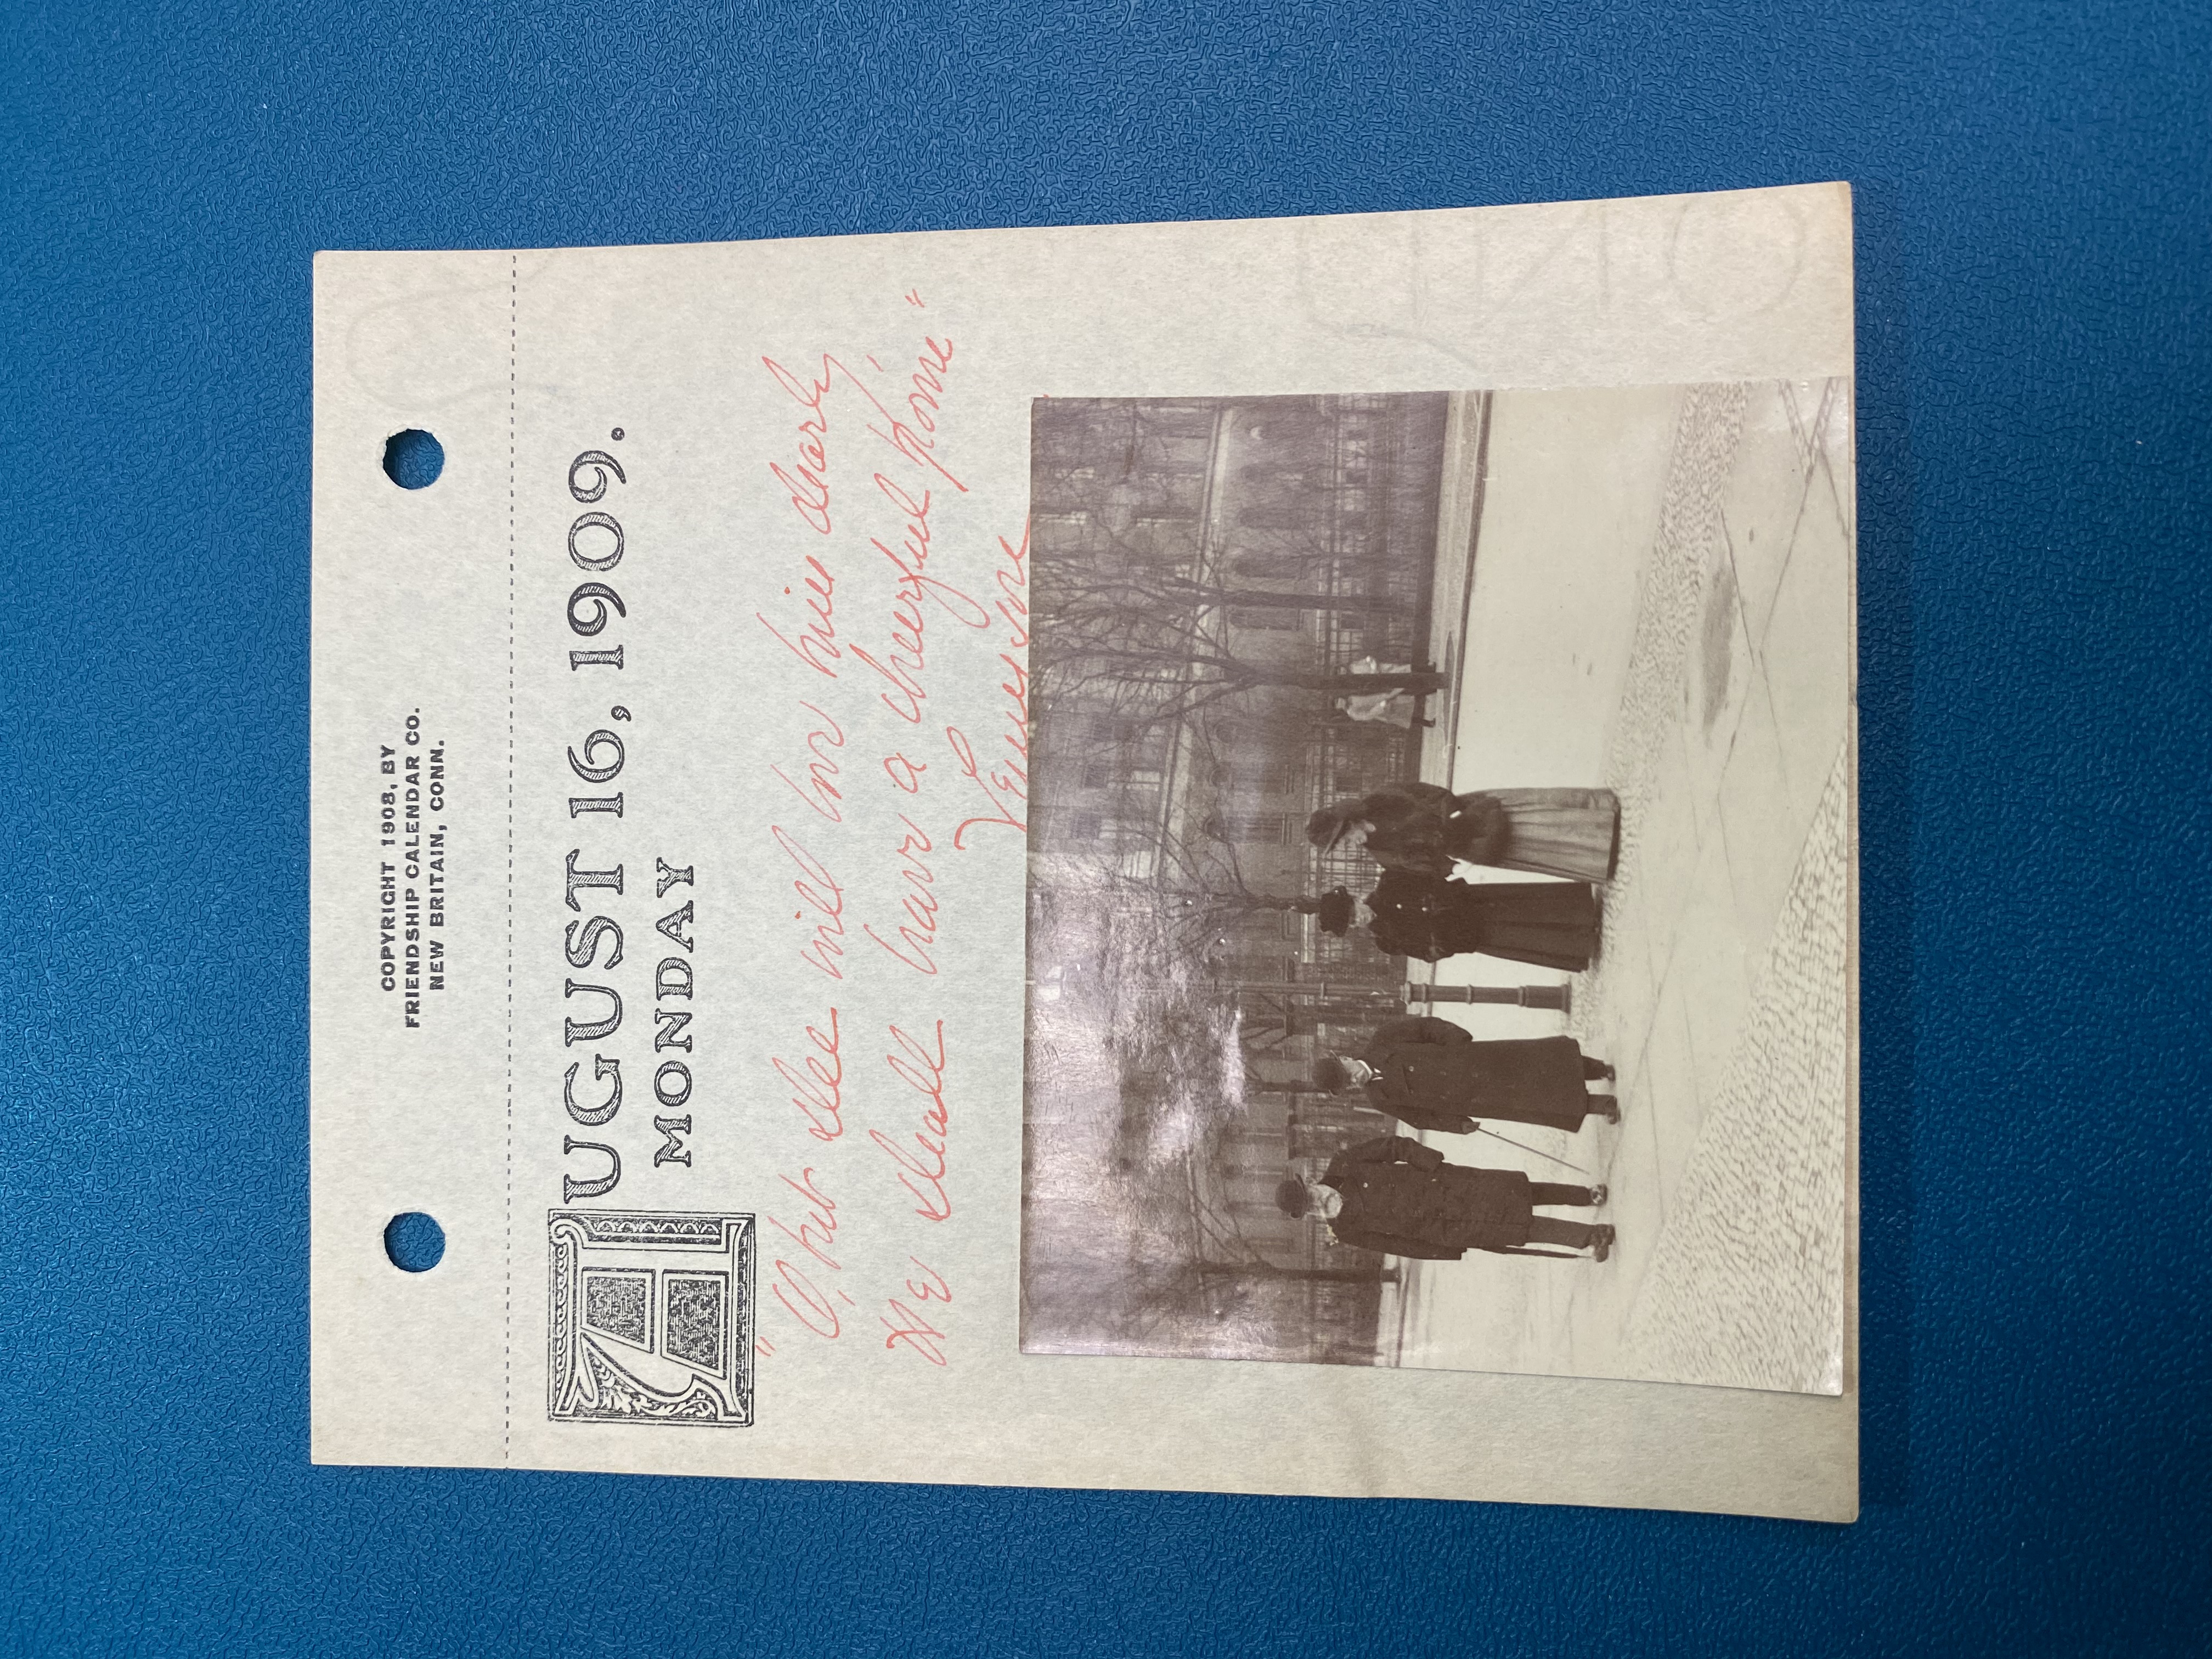 COPYRIGHT 1908, BY
FRIENDSHIP CALENDAR CO.
NEW BRITAIN, CONN.
AUGUST 16, 1909.
MONDAY
"O, but she will love him dearly
He shall have a cheerful home"
Tennyson